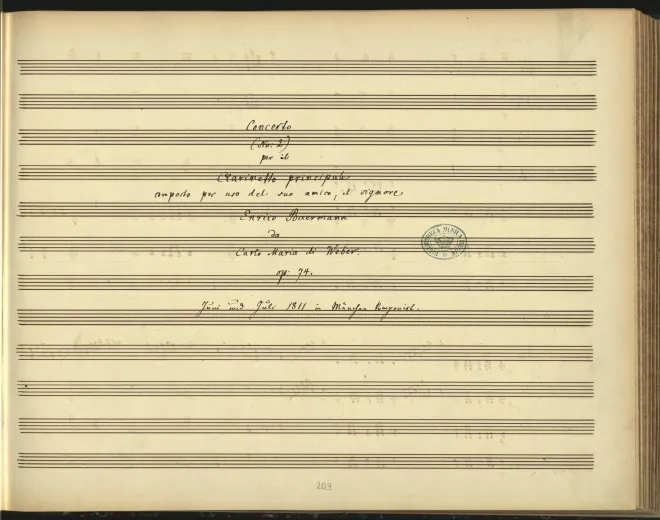 Concerto
(No: 2)
per il
Clarinetto principale
composto per uso del suo amico, il signore
Enrico Baermann
da
Carlo Maria di Weber.
op: 74.
Juni und Juli 1811 in München komponirt.
209